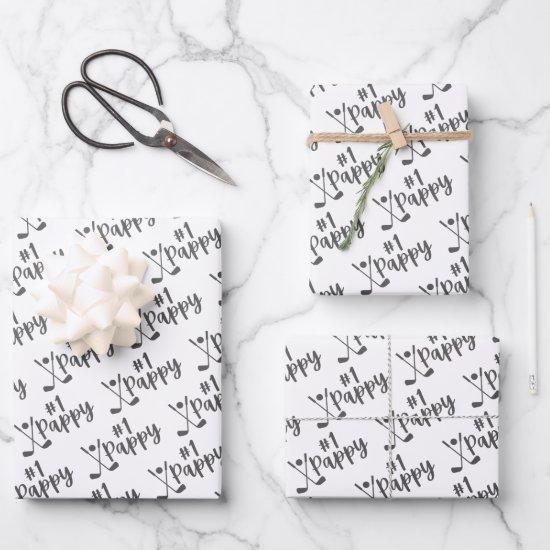 #1
Pappy